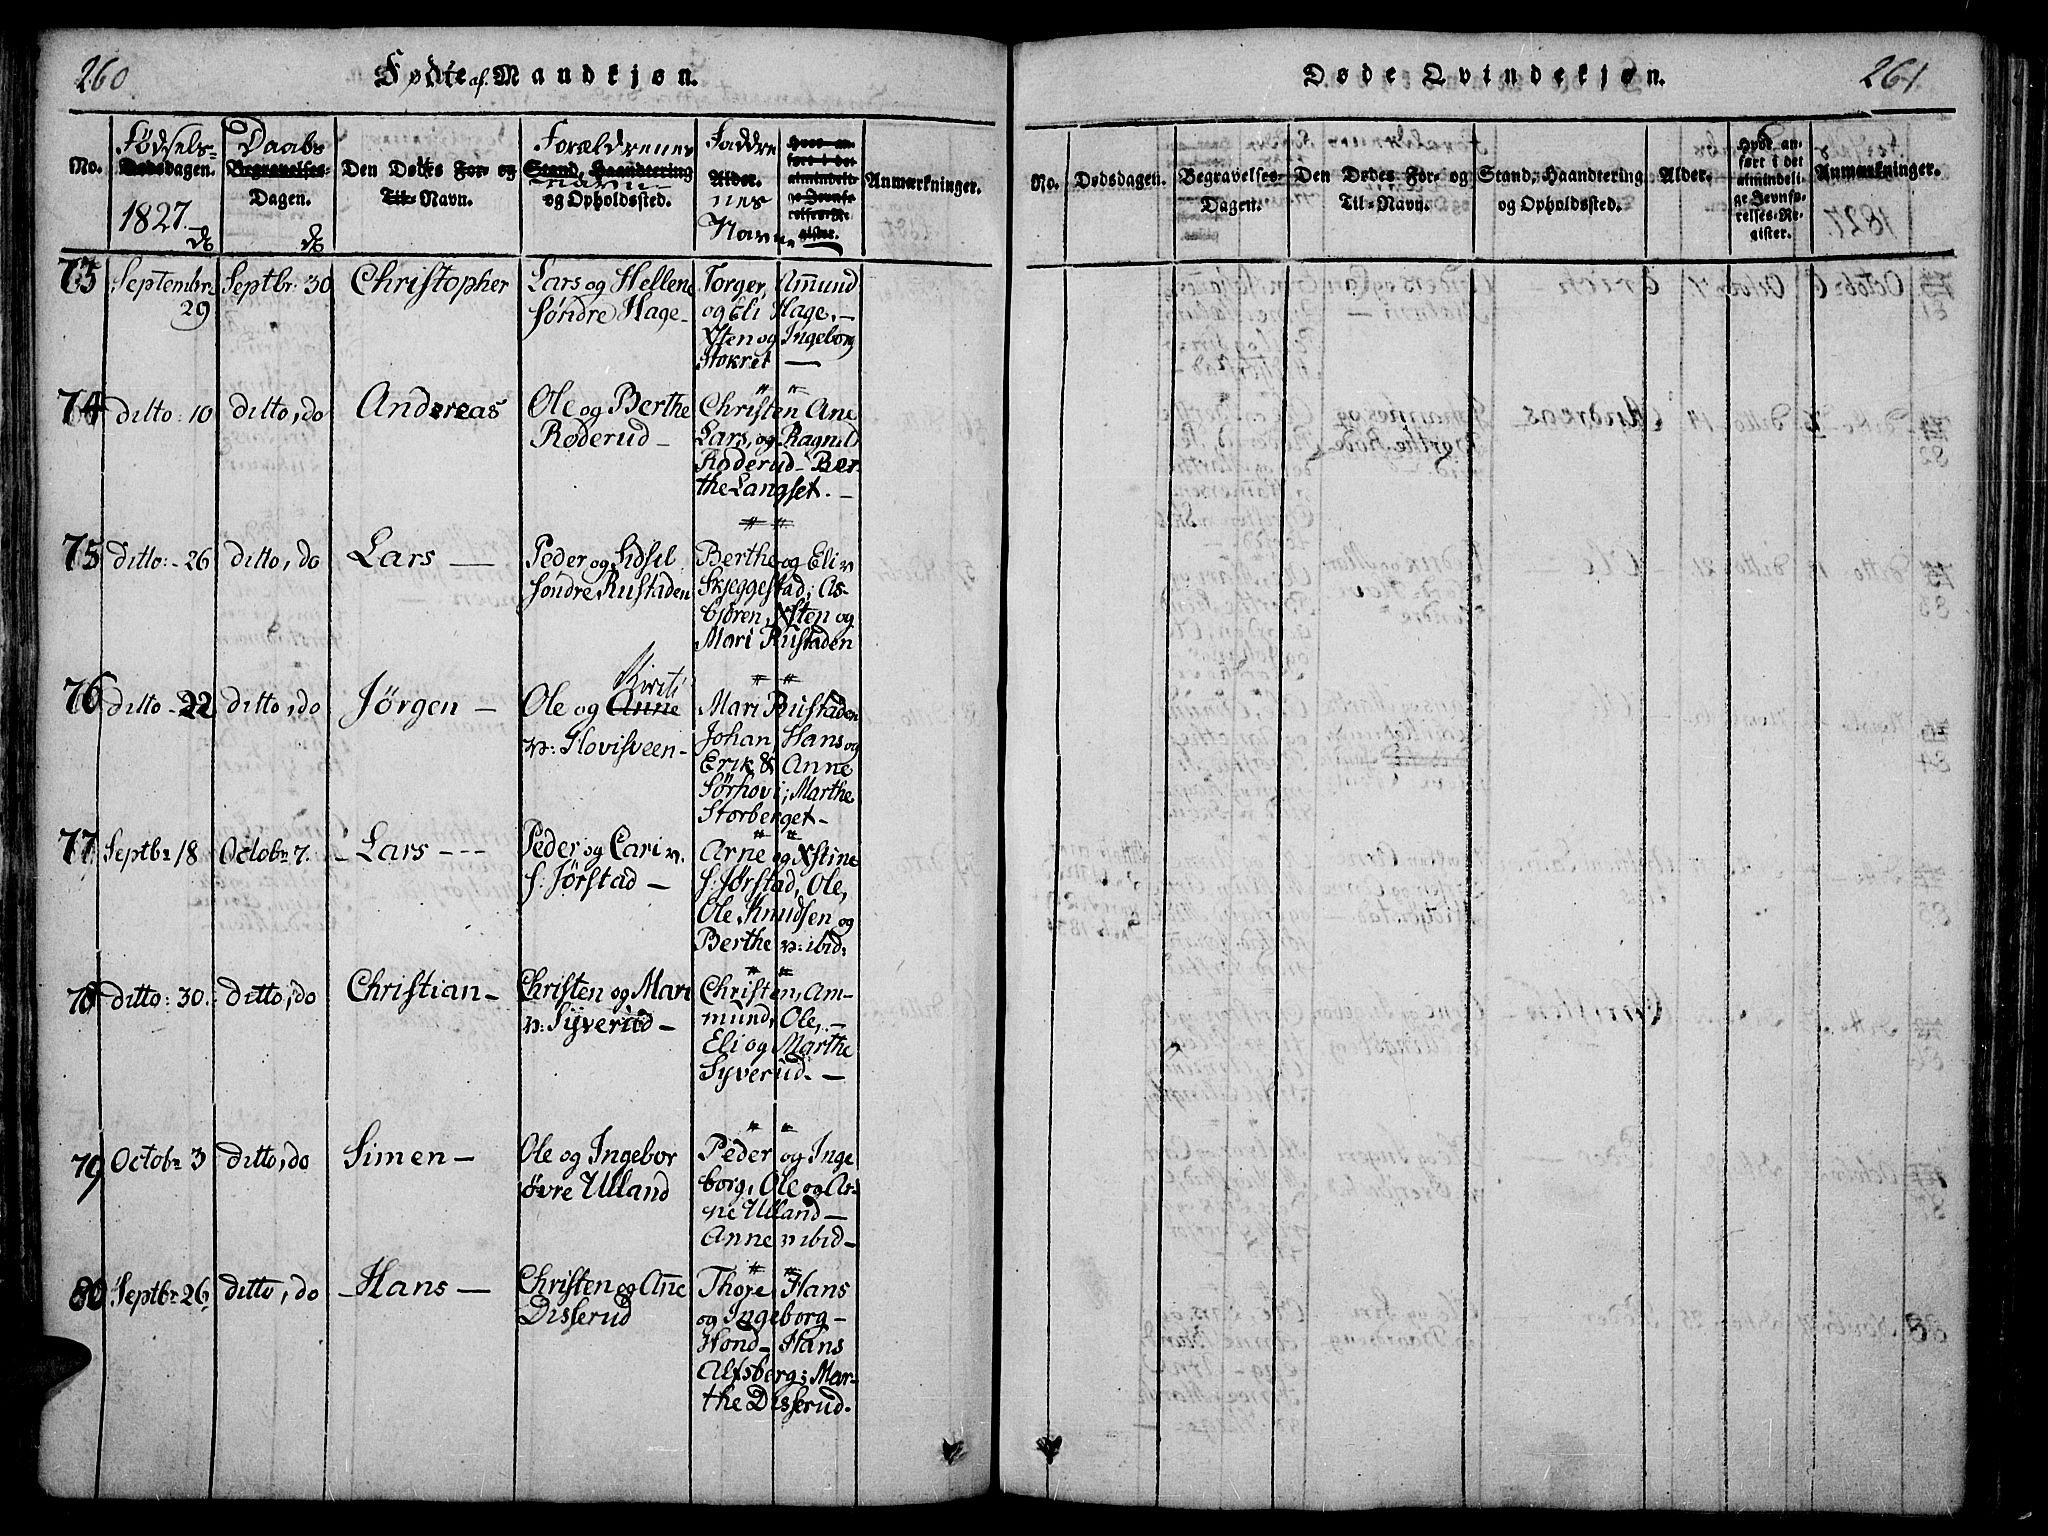 260
Fødte af Mandkjøn.
No.
Fødsels-
Dødsdagen.
1827.
Daabs
Begravelses-
Dagen.
Den Dødes For- og
Til-Navn.
Forældrenes
Stand, Haandtering
navn
og Opholdssted.
Faddre
Alder.
nes
Navne
Hvor an-
ført i det
almindeli-
ge Jevnfø-
relses-Re-
gister.
Anmærkninger.
73 Septembr: 29 Septbr: 30 Christopher
Lars og Hellene
søndre Hage-
Torger, Amund
og Eli Hage.-
Xsten og Ingeborg
Stokret —
74 ditto: 10 ditto, do Andreas
Ole og Berthe
Roderud-
Christen Ane
Lars, og Ragnild
Roderud- Ber-
the Langset. -
75 ditto: - 26 ditto, do Lars —
Peder og Sidsel
søndre Rustaden
Berthe og Eli n
Skjeggestad; As-
bjøren, Xsten og
Mari Rustaden
76 ditto - 22 ditto, do Jörgen -
Kirsti
Ole og Anne
n: Hovisveen-
Mari Rustaden
Johan, Hans og
Erik & Anne
Sørhovi; Marthe
Storberget-
77 Septbr 18 Octobr 7. - Lars - - -
Peder og Cari n.
s: Jørstad -
Arne og Xstine
s: Jørstad, Ole,
Ole Knudsen og
Berthe n: ibid:
78 ditto: 30. ditto, do Christian -
Christen og Mari
n: Syverud -
Christen, Am-
mund, Ole, -
Eli og Marthe
Syverud. -
79 Octobr 3 ditto, do Simen -
Ole og Ingebor
øvre Ulland
Peder og Inge
borg, Ole og Ar-
ne Ulland -
Anne n ibid -
80 Septbr 26, ditto, do - Hans -
Christen og Ane
Disserud
Thore Hans
og Ingeborg -
Hond - Hans
Alfsberg; Mar-
the Disserud.
Døde Qvindekjøn.
261
No.
Dødsdagen.
Begravelses-
Dagen.
Den Dødes For- og
Til-Navn.
Stand, Haandtering
og Opholdssted.
Alder.
Hvor an-
ført i det
almindeli-
ge Jevnfø-
relses-Re-
gister.
Anmærkninger.